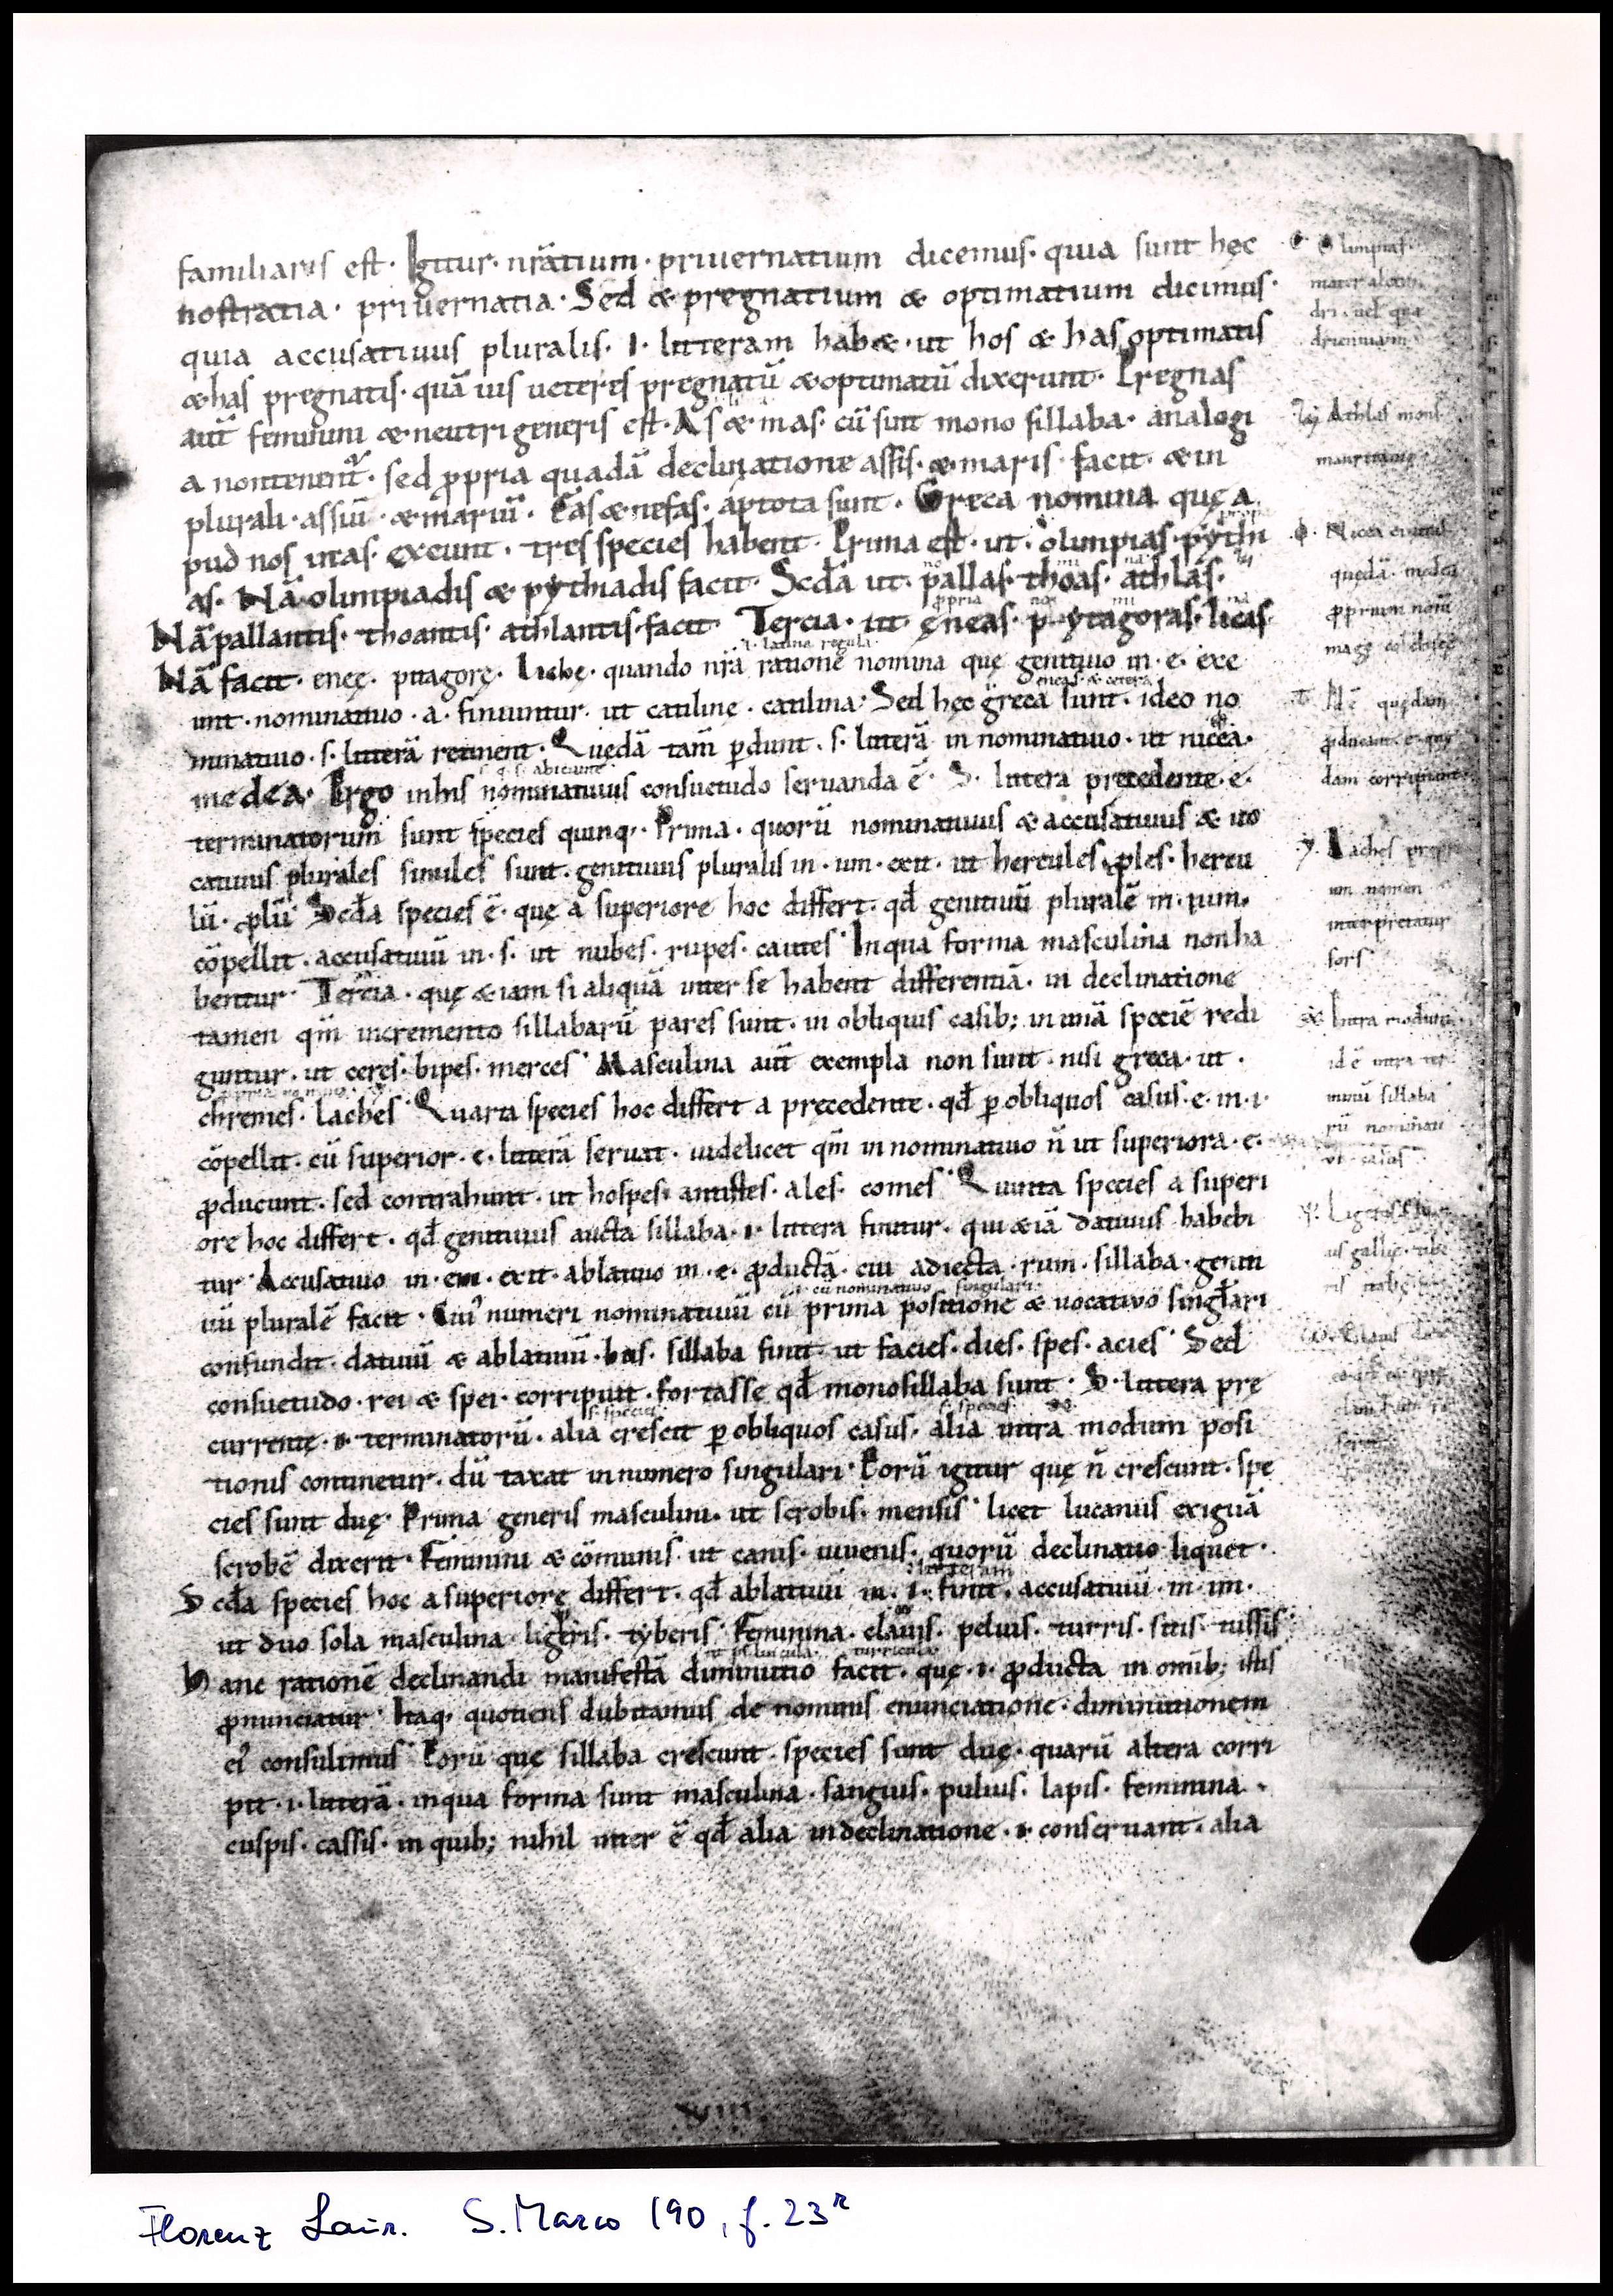 familiaris est· Igitur· nr̄atium· priuernatium dicemus· quia sunt hęc
nostratia· priuernatia· Sed & pregnatium & optimatium dicimus·
quia accusatiuus pluralis· i· litteram hab&· ut hos & has optimatis
& has pregnatis· quā uis ueteres pregnatū & optimatū dixerunt· Pregnas
aut̄ feminini & neutri generis est· As & mas· cū sint mono sillaba· analogi
a non tenent᷑· sed ꝓpria quadā declinatione assis· & maris· facit· & in
plurali· assiū· & mariū· Fas & nefas· aptota sunt· Greca nomina quę a
pud nos in as· exeunt· tres species habent· Prima est· ut· olimpias· pythi
as· Nā olimpiadis & pythiadis facit· Scd̄a ut· pallas· thoas· athlas·
Nā pallantis· thoantis· athlantis· facit· Tercia· ut ęneas· pytagoras· licas
ꝓpria
.i. latina regula·
Nā facit· eneę· pitagorę· lichę· quando nr̄a ratione nomina quę genitiuo in· e· exe
eneas· & cetera
unt· nominatiuo· a· finiuntur· ut catiline· catilina· Sed hęc gręca sunt· ideo no
minatiuo· s· litterā retinent· Quedā tam̄ ꝑdunt· s· litterā in nominatiuo· ut nicea·
abiciunt
medea· Ergo in his nominatiuus consuetudo seruanda ē· S· littera precedente· e·
terminatorum sunt species quinq;· Prima· quorū nominatiuus & accusatiuus & uo
catiuus plurales similes sunt· genitiuus pluralis in· um· exit· ut hercules· ꝓles· hercu
lū· ꝓlū· Scd̄a species ē· quę a superiore hoc differt· qd̄ genitiuū pluralē in· ium·
cōpellit· accusatiuū in· s· ut nubes· rupes· cautes· In qua forma masculina non ha
bentur· Tercia· quę & iam si aliquā inter se habent differentiā· in declinatione
tamen qm̄ incremento sillabarū pares sunt· in obliquis casib; in unā speciē redi
guntur· ut ceres· bipes· merces· Masculina aut̄ exempla non sunt· nisi greca· ut·
chremes· laches· Quarta species hoc differt a precedente· qd̄ ꝑ obliquos casus· e· in· i·
cōpellit· cū superior· e· litterā seruat· uidelicet qm̄ in nominatiuo n̄ ut superiora· e·
ꝓducunt· sed contrahunt· ut hospes· antistes· ales· comes· Quinta species a superi
ore hoc differt· qd̄ genitiuus aucta sillaba· i· littera finitur· qui & iā datiuus habebi
tur· Accusatiuo in· em· exit· ablatiuo in· e· ꝓductā· cui adiecta· rum· sillaba· geniti
.i. cū nominatiuo singulari·
uū pluralē facit· Cui᷒ numeri nominatiuū cū prima positione & uocatiuo singl̄ari
confundit· datiuū & ablatiuū· bus· sillaba finit· ut facies· dies· spes· acies· Sed
consuetudo· rei & spei· corripuit· fortasse qd̄ monosillaba sunt· S· littera pre
s. species·
s. species·
currente· i· terminatorū· alia crescit ꝑ obliquos casus· alia intra modum posi
tionis continetur· dū taxat in numero singulari· Eorū igitur quę n̄ crescunt· spe
cies sunt duę· Prima generis masculini· ut scrobis· mensis· licet lucanus exiguā
scrobē dixerit· Feminini & cōmunis· ut canis· iuuenis· quorū declinatio liquet·
litteram
Scd̄a species hoc a superiore differt· qd̄ ablatiuū in· i· finit· accusatiuū· in· im·
ut duo sola masculina· ligeris· tyberis· Feminina· clauis· peluis· turris· sitis· tussis·
Hanc rationē declinandi manifestā diminutio facit· quę· i· ꝓducta in omib; istis
ꝓnunciatur· Itaq; quotiens dubitamus de nominis enunciatione· diminutionem
ei᷒ consulimus· Eorū quę sillaba crescunt· species sunt duę· quarū altera corri
pit· i· litterā· in qua forma sunt masculina· sanguis· puluis· lapis· feminina·
cuspis· cassis· in quib; nihil inter ē qd̄ alia in declinatione· i· conseruant· alia
Olimpias·
mater alexan
dri·
Athlas mons
Nicea ciuitas
quedā· medea
ꝓprium nom̄
Id ē quędam
ꝓducunt· e· quę
dam corripiunt
Laches
um nomen
interpretatur
sors
Intra modum
id ē intra
sillaba
rū nominati
Florenz Laur. S. Marco 190, f. 23r